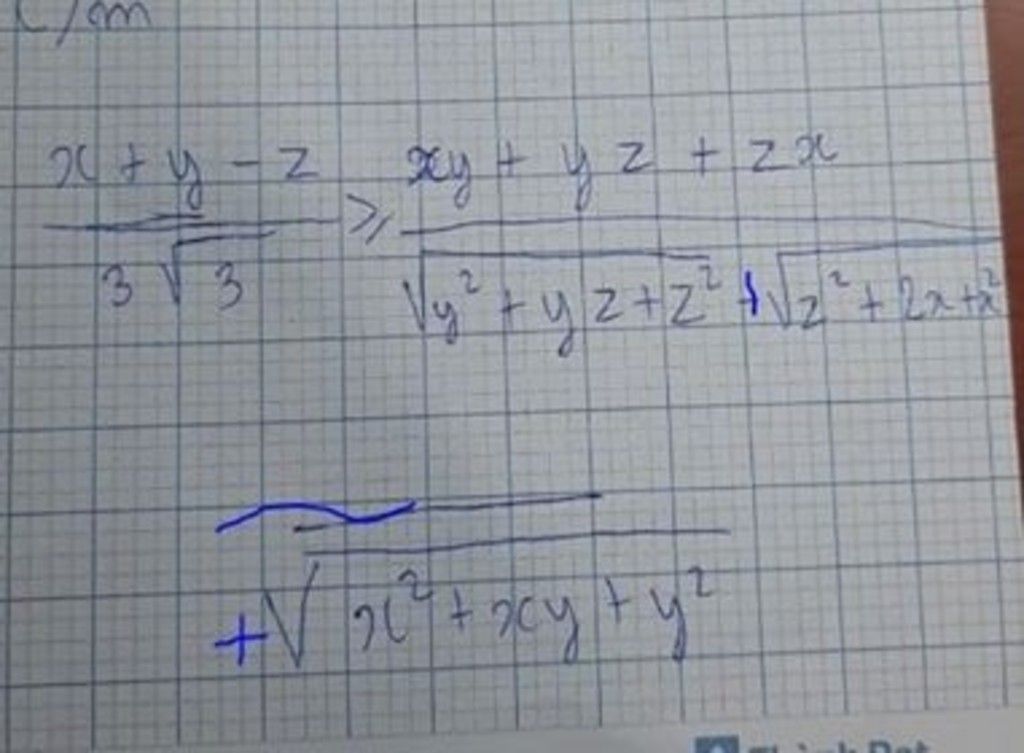 C/m
x + y - z / 3√3 ≥ xy + yz + zx / √y² + yz + z² + √z² + zx + x²
+ √x² + xy + y²